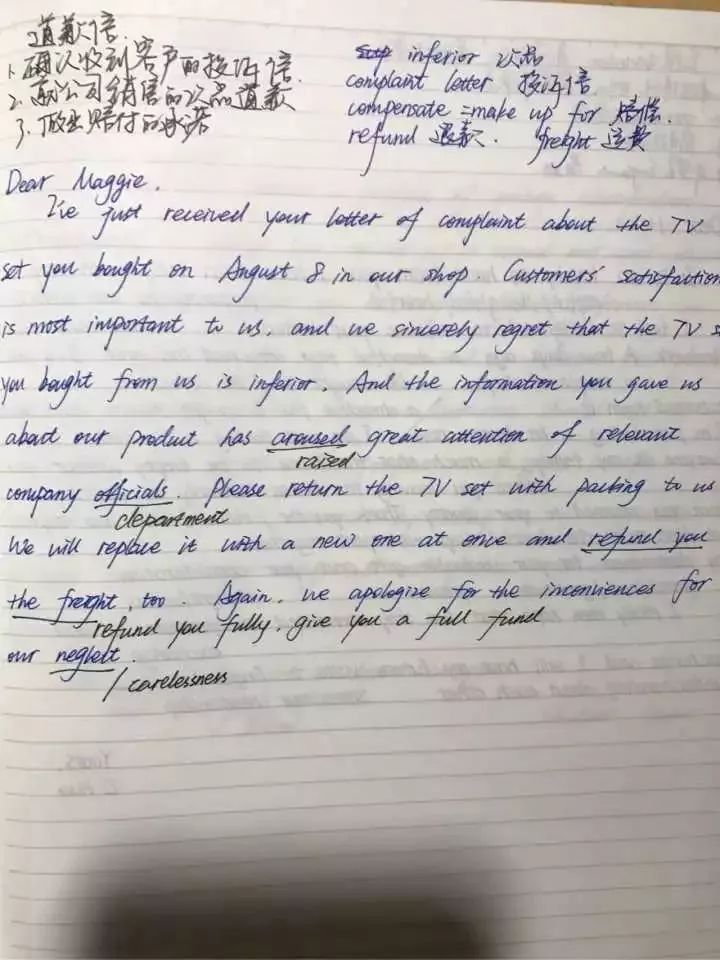 道歉信.
1. 确认收到客户的投诉信.
2. 就公司销售的次品道歉
3. 做出赔付的承诺
inferior 次品
complaint letter 投诉信
compensate = make up for 赔偿.
refund 退款. freight 运费
Dear Maggie,
I've just received your letter of complaint about the TV
set you bought on August 8 in our shop. Customers' satisfaction
is most important to us, and we sincerely regret that the TV s
you bought from us is inferior. And the information you gave us
about our product has aroused great attention of relevant
raised
company officials. Please return the TV set with packing to us
department
We will replace it with a new one at once and refund you
the freight, too. Again, we apologize for the inconviences for
refund you fully, give you a full fund
our neglect.
/ carelessness